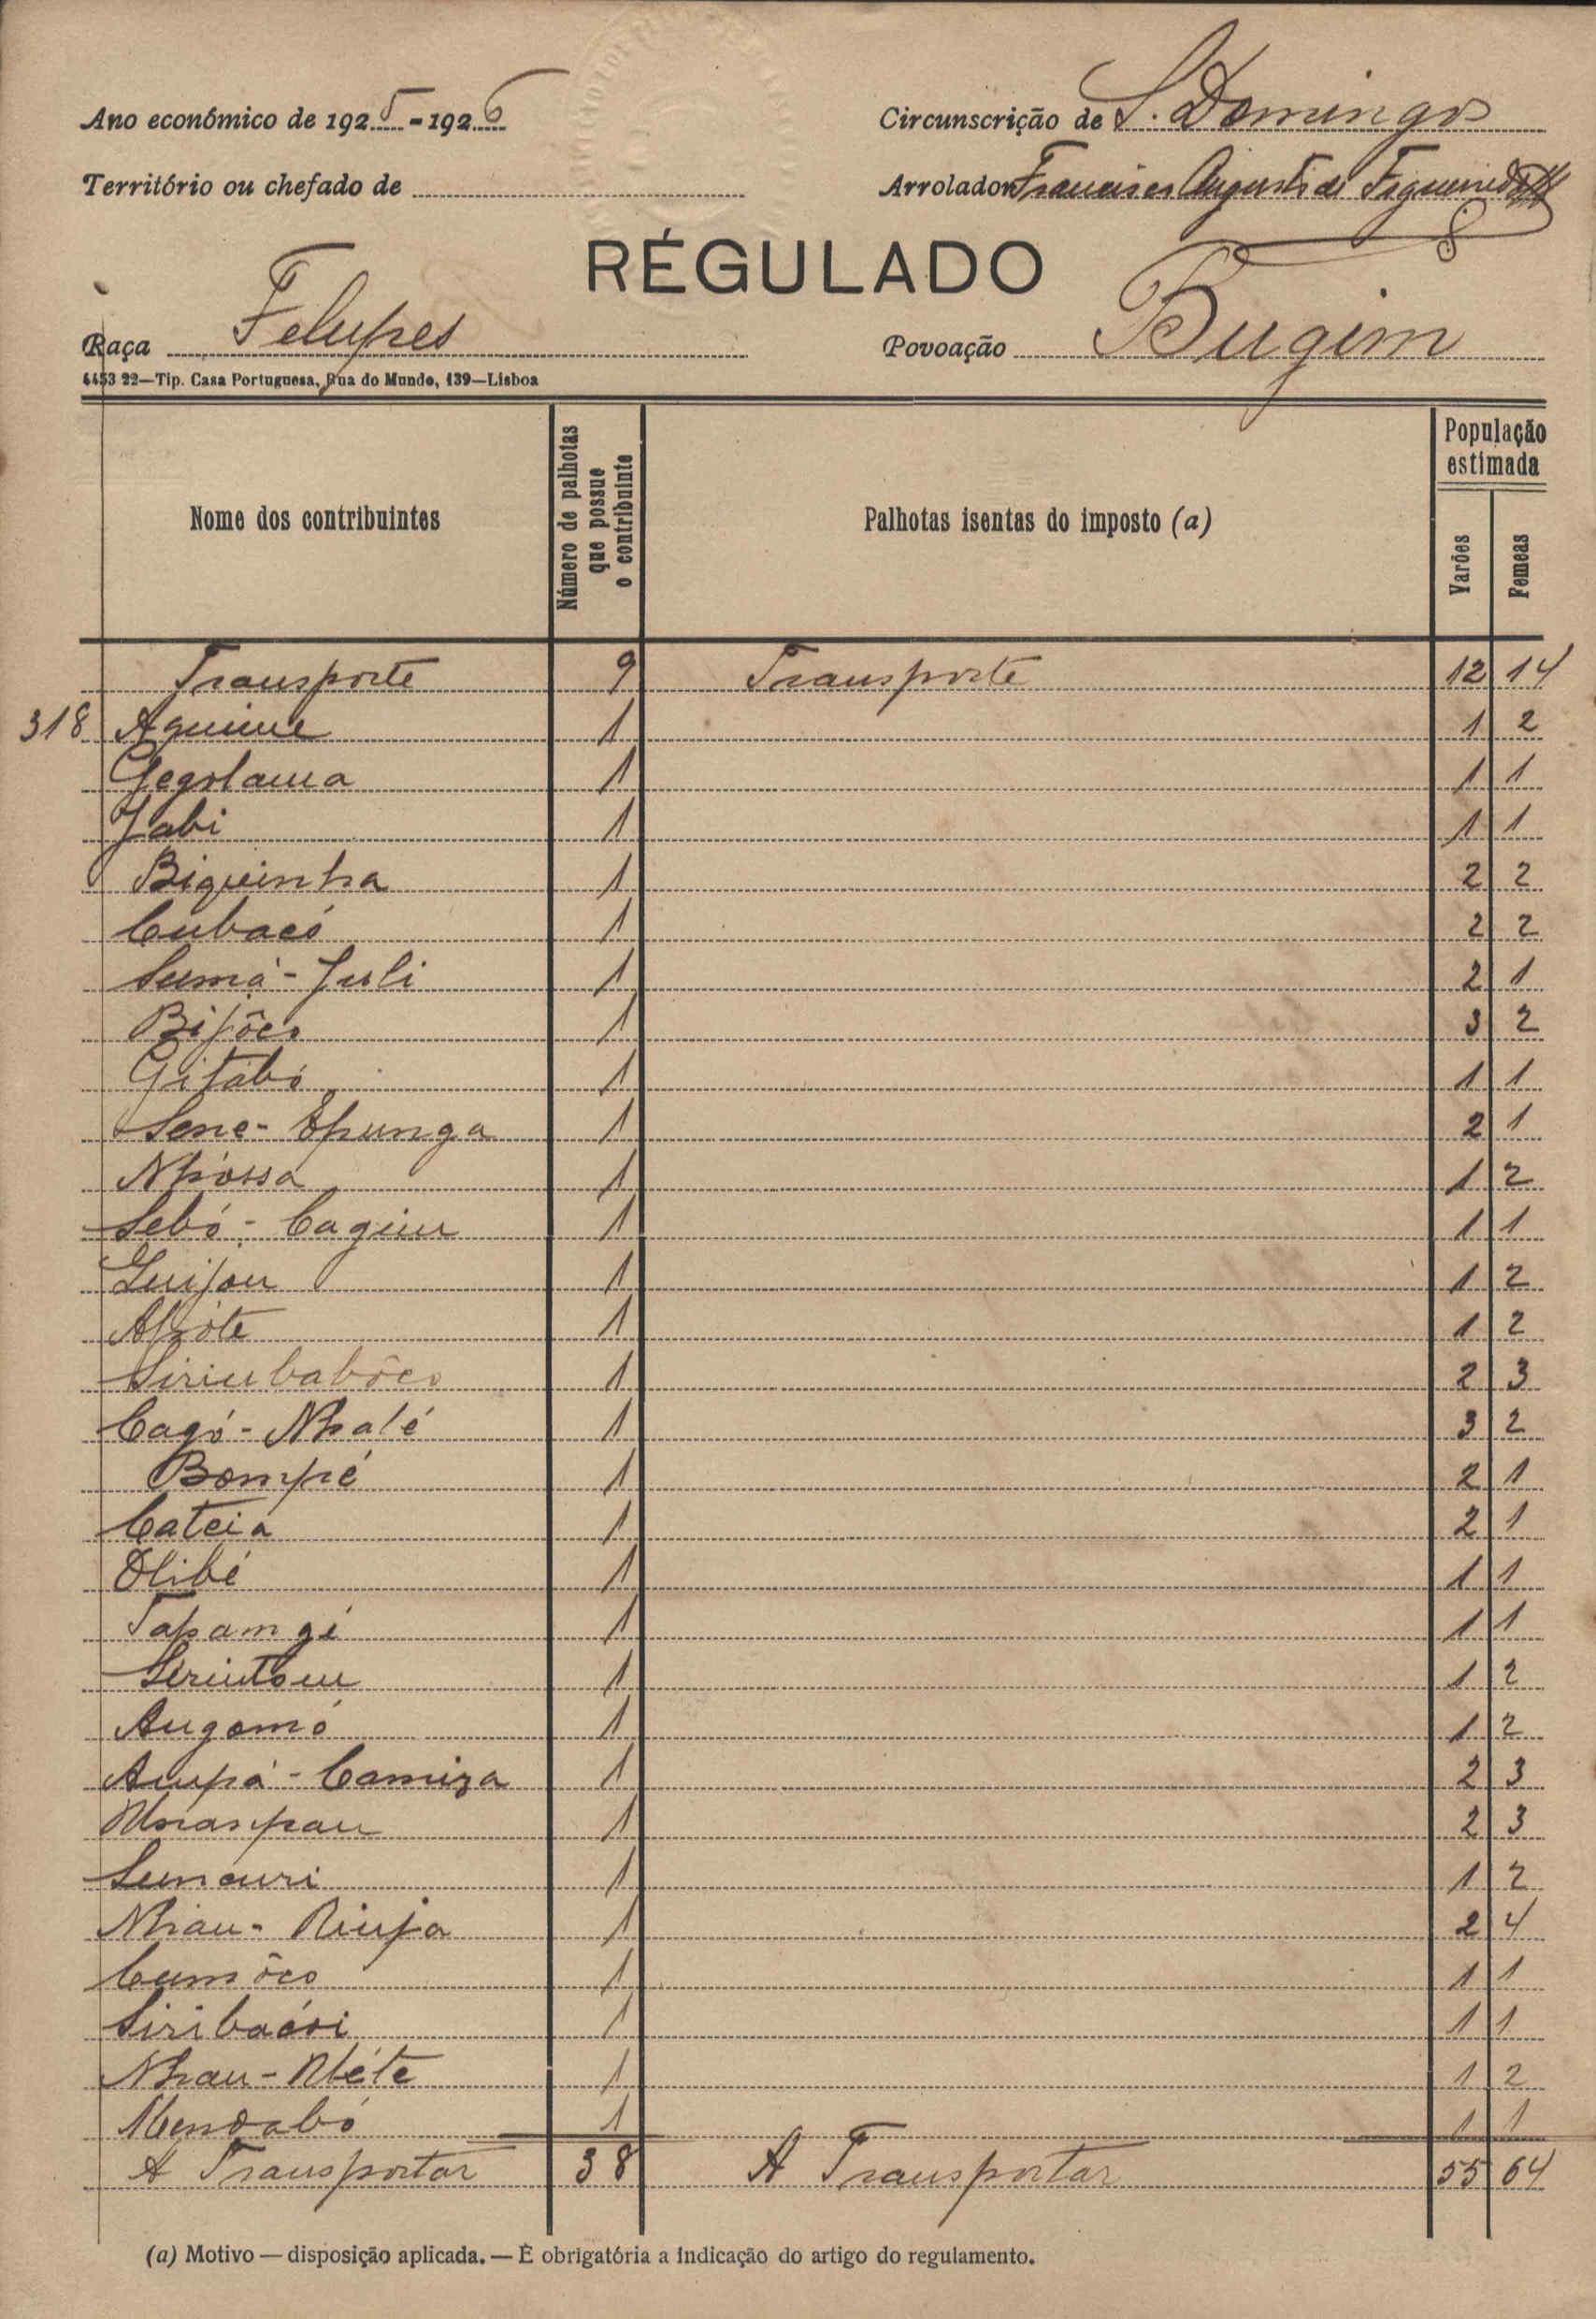 Ano económico de 1925-1926
Circunscrição de S. Domingos
Território ou chefado de
Arrolador Francisco Augusto de Figueiredo
RÉGULADO
Raça Felupes
Povoação Bugim
4453 22—Tip. Casa Portuguesa, Rua do Mundo, 139—Lisboa
Nome dos contribuintes
Número de palhotas que possue o contribuinte
Palhotas isentas do imposto (a)
População estimada
Varões
Femeas
Transporte 9 Transporte 12 14
318 Aquine 1 1 2
Gegolama 1 1 1
Jabi 1 1 1
Biqueinha 1 2 2
Cubacó 1 2 2
Sumá-Juli 1 2 1
Bijôco 1 3 2
Gitábó 1 1 1
Sene-Apunga 1 2 1
Nhóssa 1 1 2
Sebó-Cagim 1 1 1
Guijou 1 1 2
Apóte 1 1 2
Sirimbabôco 1 2 3
Cagó-Nhalé 1 3 2
Bompé 1 2 1
Cateia 1 2 1
Olibé 1 1 1
Tapamgé 1 1 1
Sirintom 1 1 2
Augomó 1 1 2
Aupá-Camiza 1 2 3
1 2 3
Suncuri 1 1 2
Nhau-Riuja 1 2 4
Cumôco 1 1 1
Siribácoi 1 1 1
Nhau-Néte 1 1 2
Mendabó 1 1 1
A Transportar 38 A Transportar 55 64
(a) Motivo — disposição aplicada. — É obrigatória a indicação do artigo do regulamento.